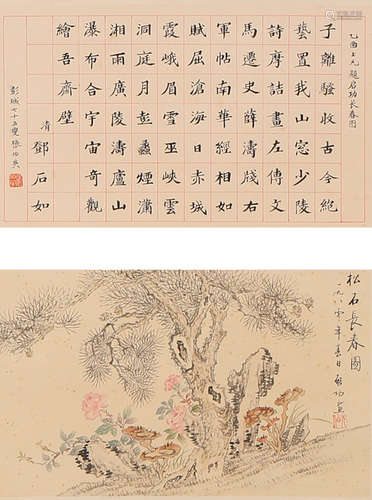 乙酉上元題启功長春圖
子離騷收古今絕
藝置我山窗少陵
詩摩詰畫左傳文
馬遷史薛濤牋右
軍帖南華經相如
賦屈滄海日赤城
霞峨眉雪巫峽雲
洞庭月彭蠡煙瀟
湘雨廣陵濤廬山
瀑布合宇宙奇觀
繪吾齋壁
清鄧石如
彭城七十五叟張
松石長春圖
一九八零年春日啟功畫